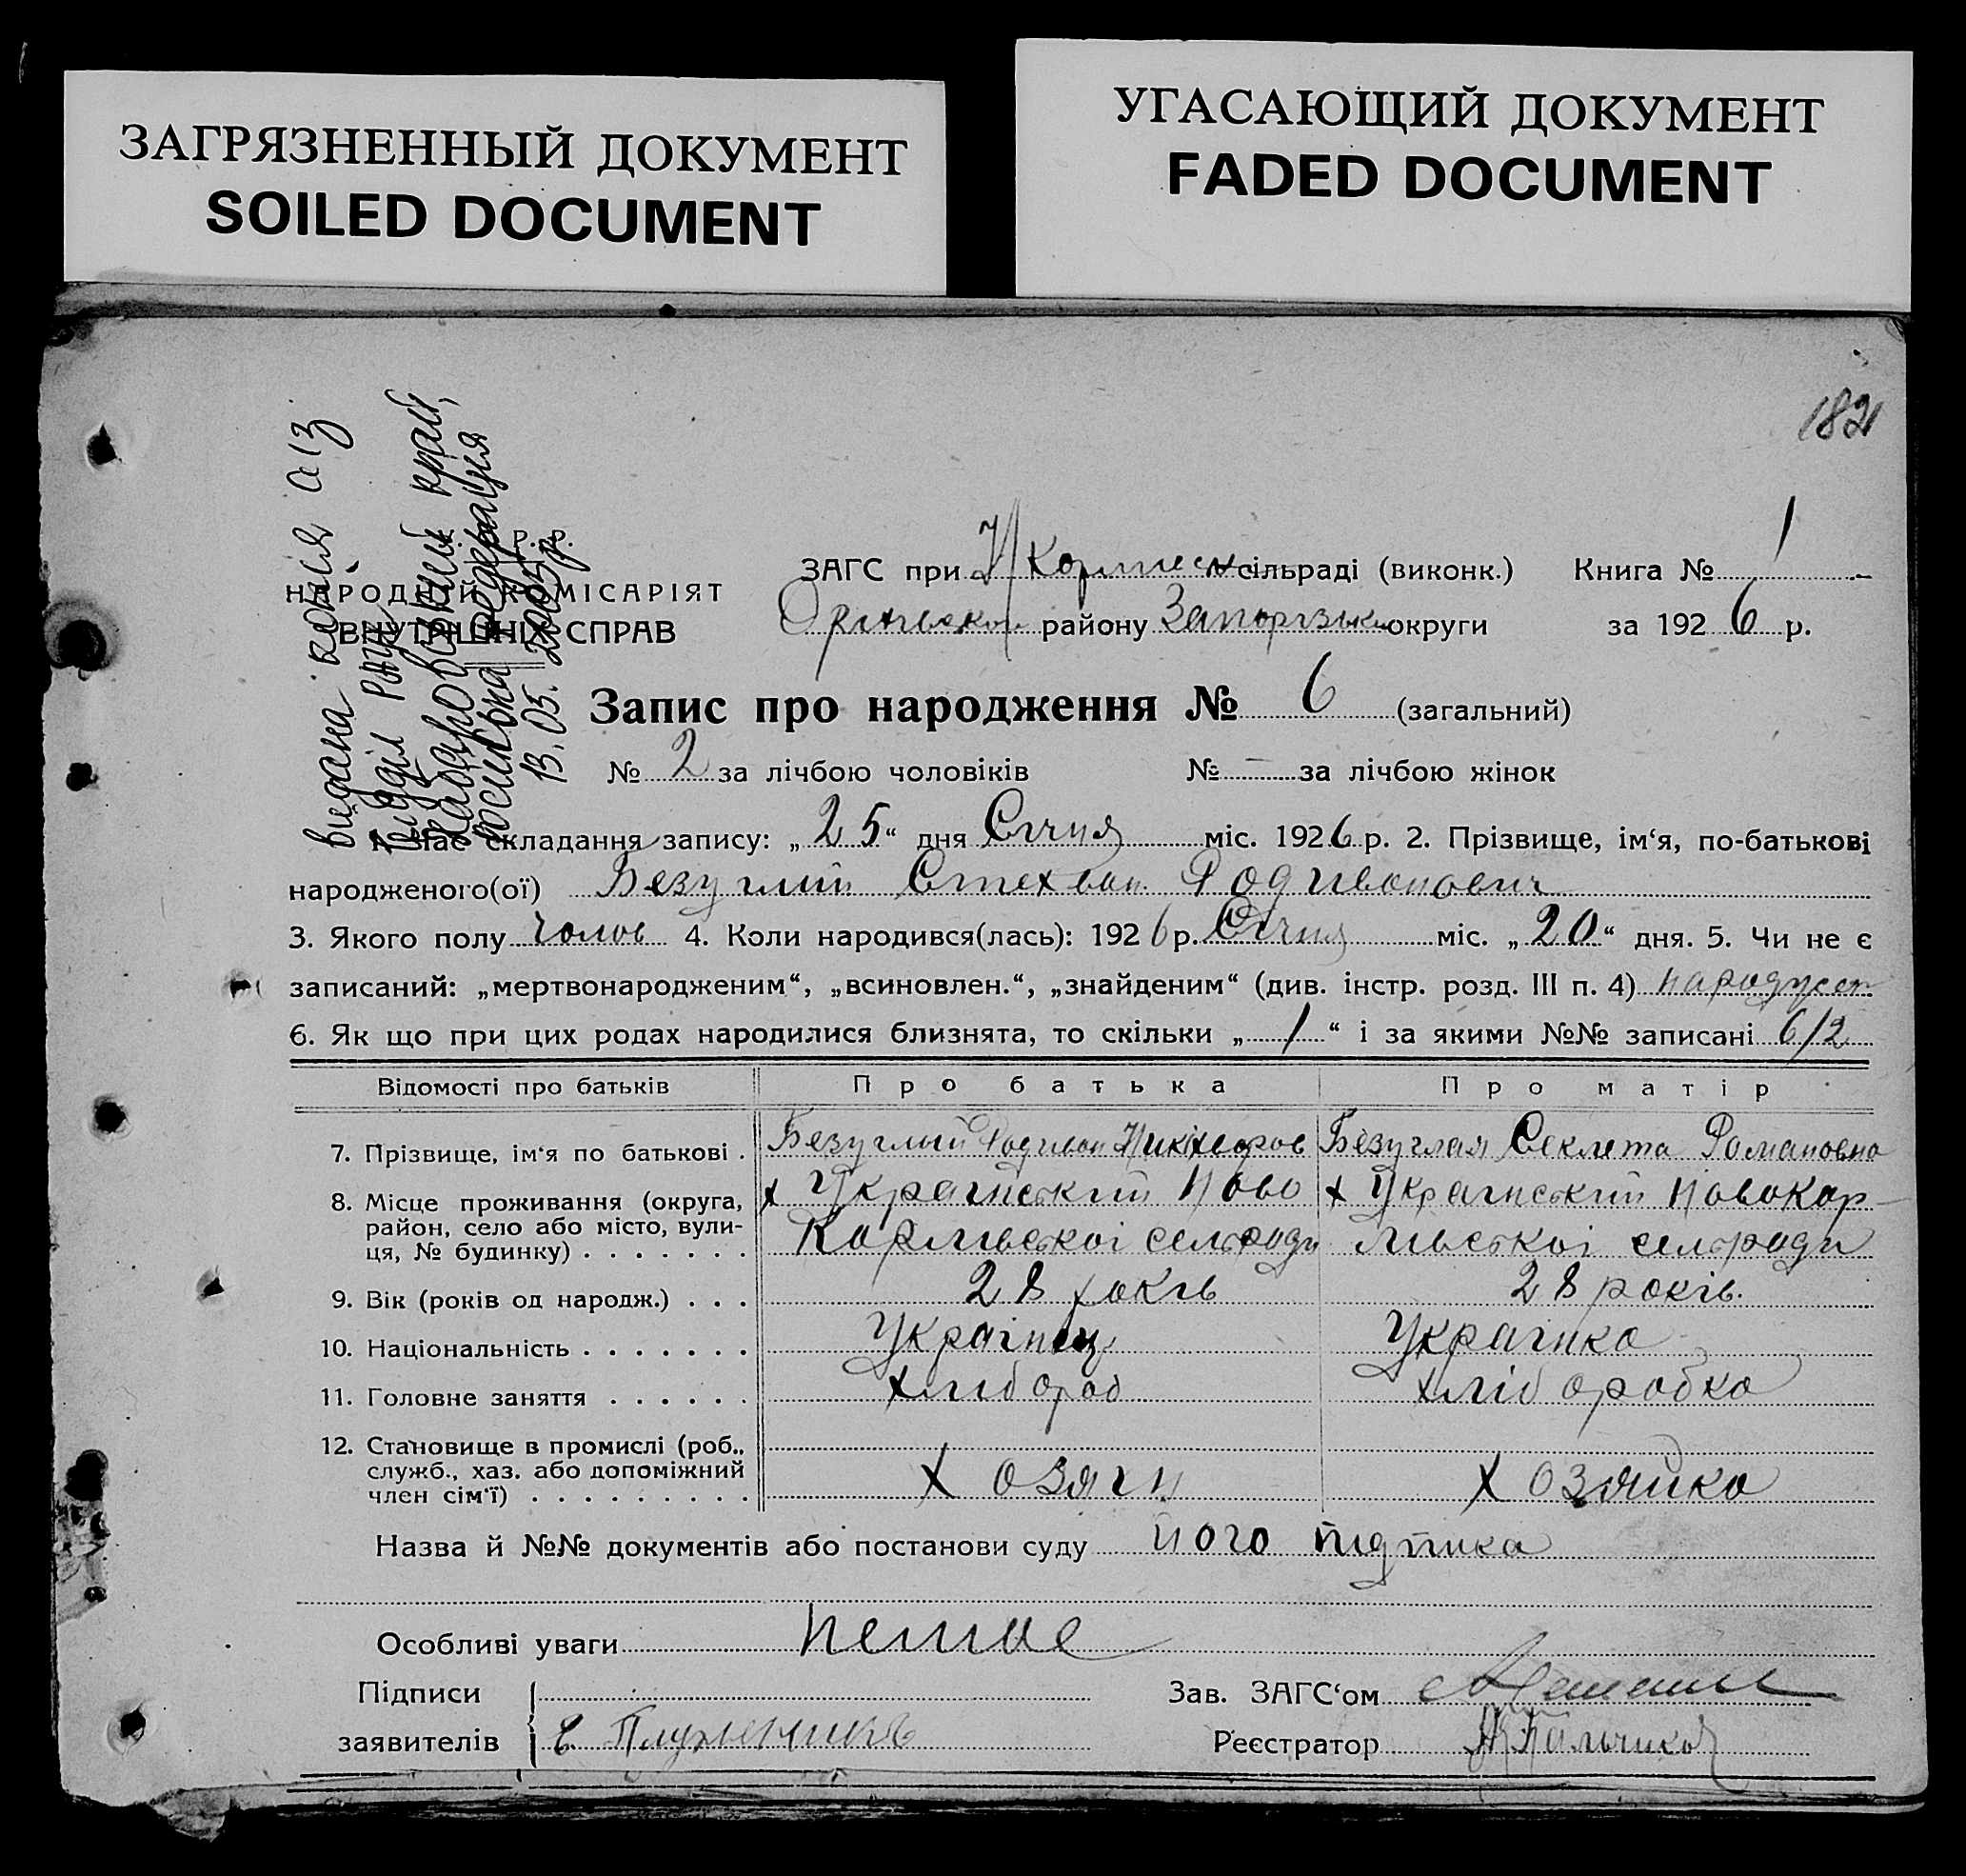 ЗАГРЯЗНЕННЫЙ ДОКУМЕНТ
SOILED DOCUMENT
УГАСАЮЩИЙ ДОКУМЕНТ
FADED DOCUMENT
182
видана копія аіз
відділ РАЦС
Хабаровський край,
Російська Федерація
13.05.2005р
Р.Р.
НАРОДНІЙ КОМІСАРІЯТ
ВНУТРІШНІХ СПРАВ
ЗАГС при сільраді (виконк.) Книга № 1
району Запорізької округи за 1926 р.
Запис про народження № 6 (загальний)
№ 2 за лічбою чоловіків № - за лічбою жінок
1. Час складання запису: „25“ дня Січня міс. 1926 р. 2. Прізвище, ім‘я, по-батькові
народженого(ої) Безуглий Стехван Родивонович
3. Якого полу чолов 4. Коли народився(лась): 1926 р. Січня міс. „20“ дня. 5. Чи не є
записаний: „мертвонародженим“, „всиновлен.“, „знайденим“ (див. інстр. розд. III п. 4)
6. Як що при цих родах народилися близнята, то скільки „1“ і за якими №№ записані 6/2
Відомості про батьків Про батька Про матір
7. Прізвище, ім‘я по батькові . Безуглый Родивон Никіхворов Безуглая Секлета Романовна
8. Місце проживання (округа, х Український Ново х Український Новокар-
район, село або місто, вули- Карлівської сельради лівської сельради
ця, № будинку) . . . . . . .
9. Вік (років од народж.) . . . 28 років 28 років.
10. Національність . . . . . . . Українец Українка
11. Головне заняття . . . . . . Хлібороб хліборобка
12. Становище в промислі (роб.,
служб., хаз. або допоміжний Хозяін Хозяйка
член сім‘ї) . . . . . . . . .
Назва й №№ документів або постанови суду його підписка
Особливі уваги немае
Підписи Зав. ЗАГС‘ом
заявителів Реєстратор